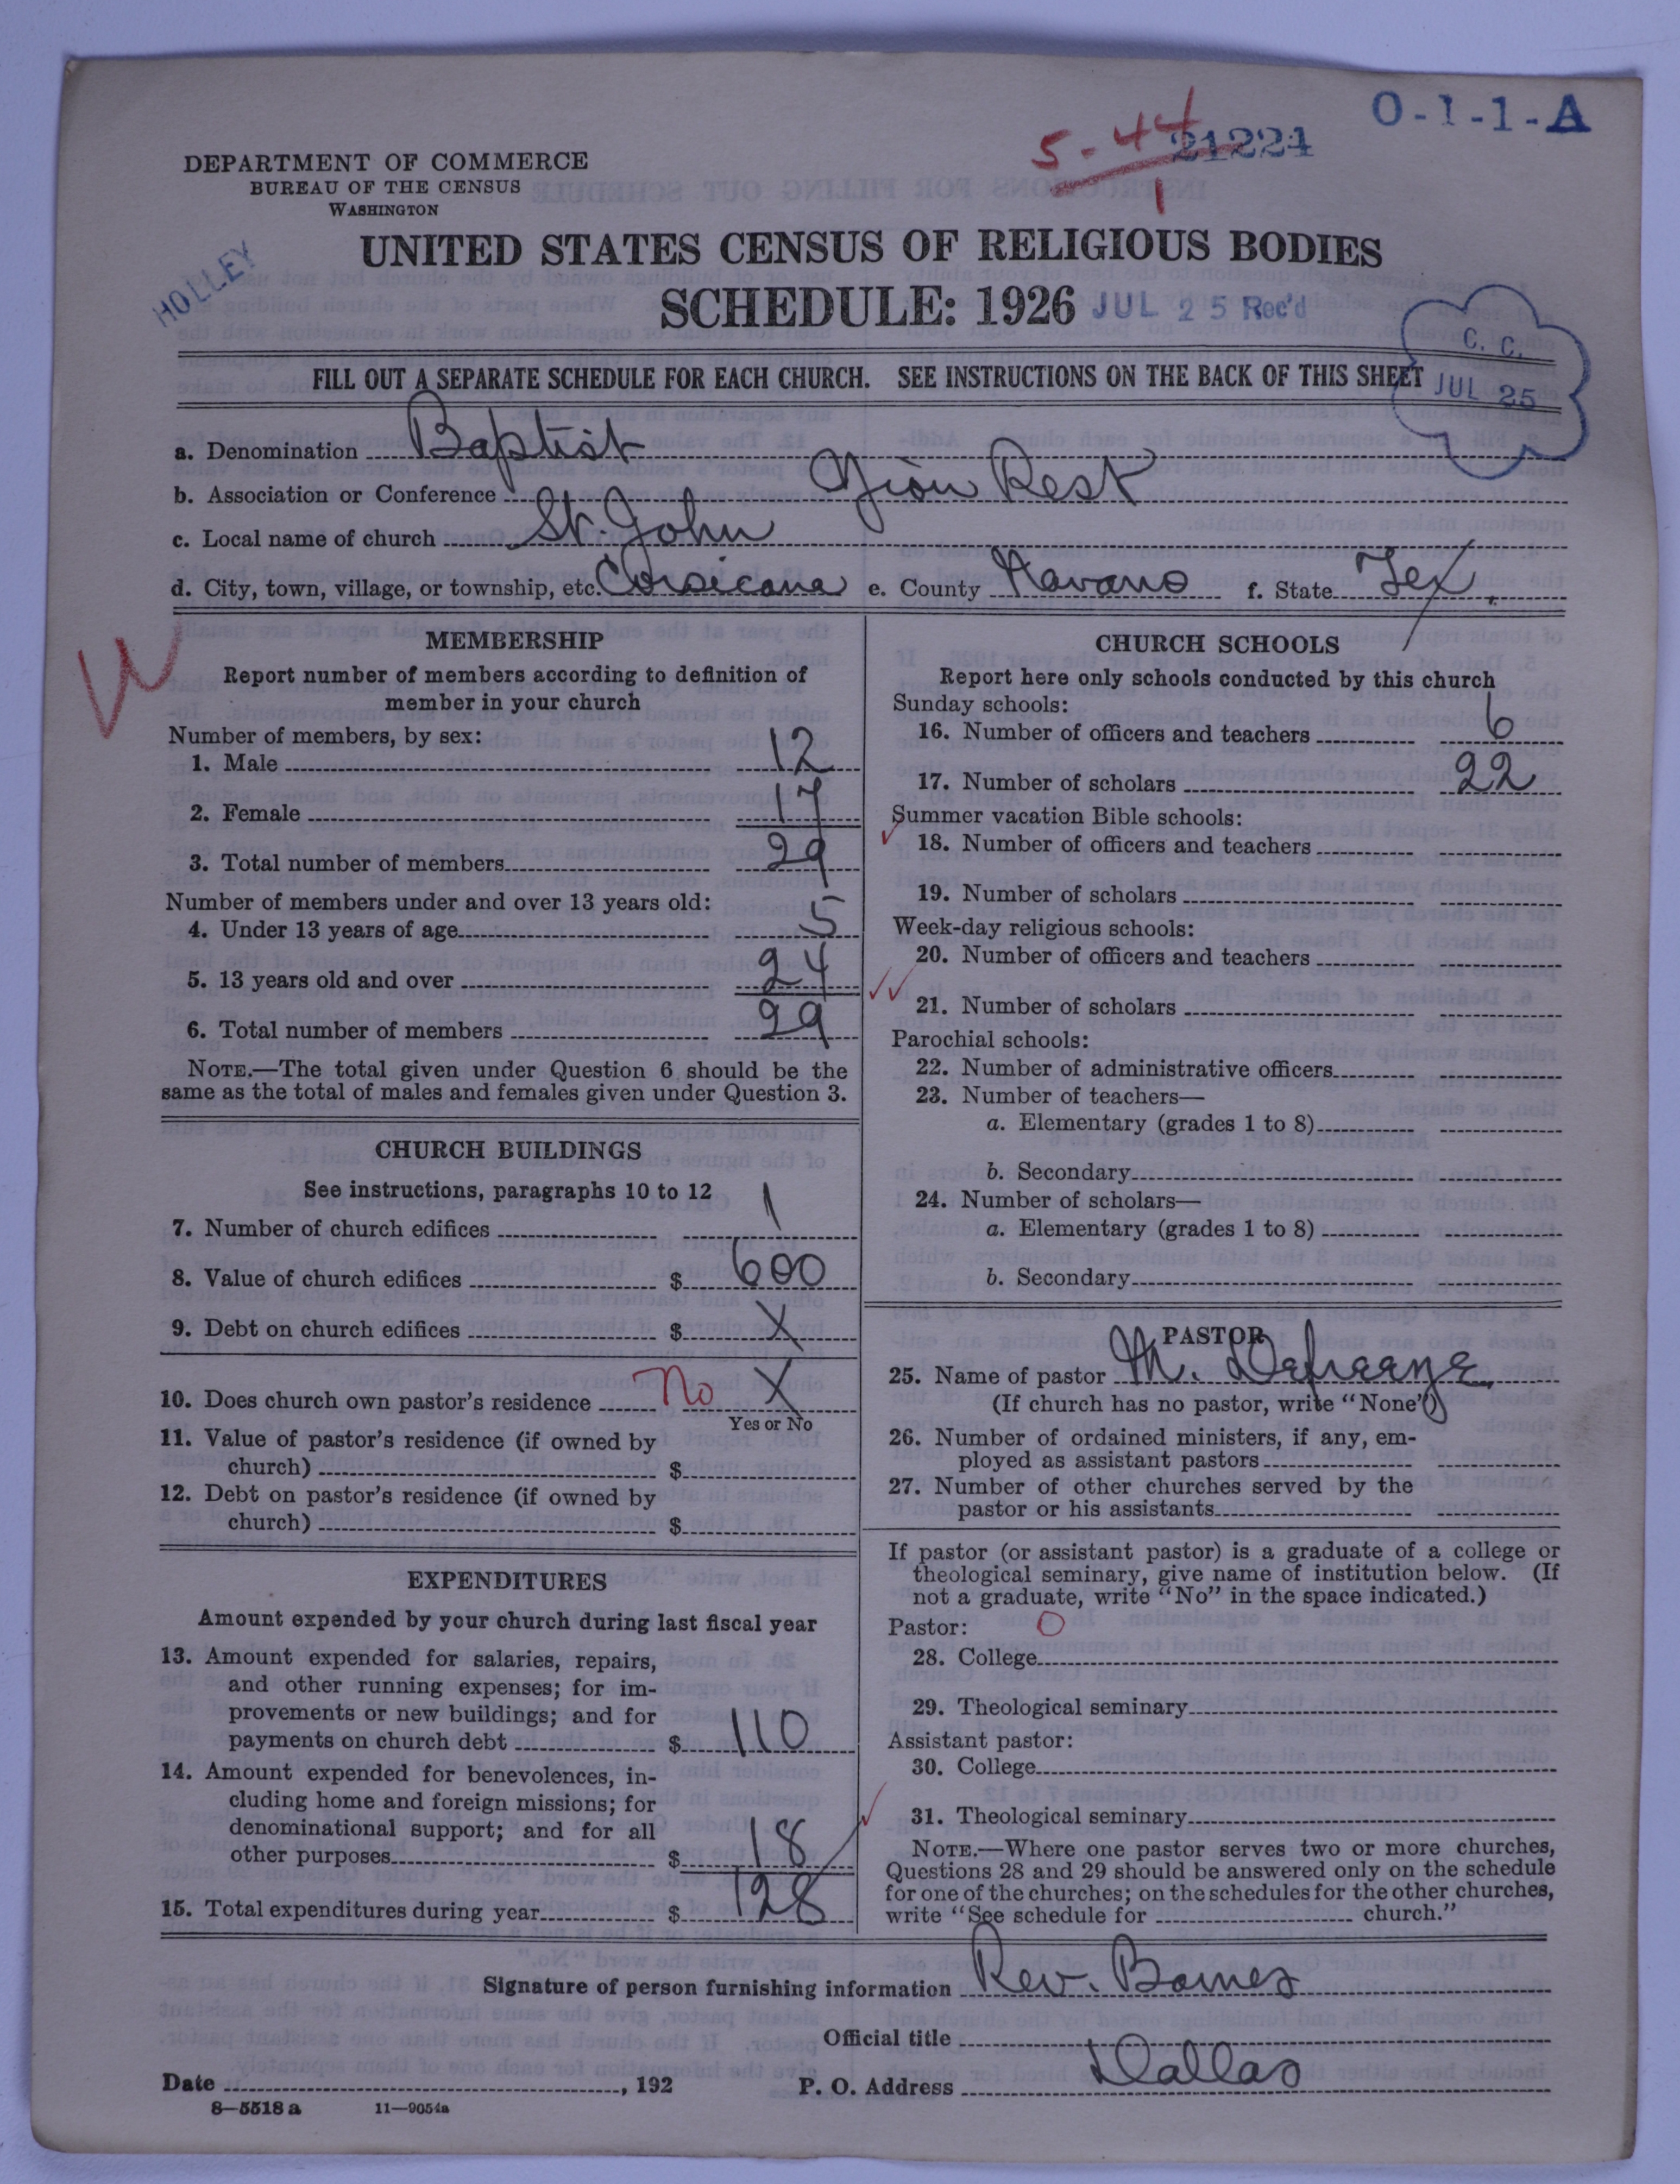 O-1-1-A
5-44
1
21221
DEPARTMENT OF COMMERCE
BUREAU OF THE CENSUS
WASHINGTON
HOLLEY
UNITED STATES CENSUS OF RELIGIOUS BODIES
SCHEDULE: 1926 JUL 25 Rec'd
C. C.
JUL 25
FILL OUT A SEPARATE SCHEDULE FOR EACH CHURCH. SEE INSTRUCTIONS ON THE BACK OF THIS SHEET
a. Denomination Baptist
b. Association or Conference Zion Rest
c. Local name of church St. John
d. City, town, village, or township, etc. Corsicana e. County Navarro f. State Tex.
MEMBERSHIP
Report number of members according to definition of
member in your church
Number of members, by sex:
1. Male 12
2. Female 17
3. Total number of members 29
Number of members under and over 13 years old:
4. Under 13 years of age 5
5. 13 years old and over 24
6. Total number of members 29
NOTE.—The total given under Question 6 should be the
same as the total of males and females given under Question 3.
CHURCH BUILDINGS
See instructions, paragraphs 10 to 12
7. Number of church edifices 1
8. Value of church edifices $ 600
9. Debt on church edifices $ X
10. Does church own pastor's residence No X
Yes or No
11. Value of pastor's residence (if owned by
church) $
12. Debt on pastor's residence (if owned by
church) $
EXPENDITURES
Amount expended by your church during last fiscal year
13. Amount expended for salaries, repairs,
and other running expenses; for im-
provements or new buildings; and for
payments on church debt $ 110
14. Amount expended for benevolences, in-
cluding home and foreign missions; for
denominational support; and for all
other purposes $ 18
15. Total expenditures during year $ 128
CHURCH SCHOOLS
Report here only schools conducted by this church
Sunday schools:
16. Number of officers and teachers 6
17. Number of scholars 22
Summer vacation Bible schools:
18. Number of officers and teachers
19. Number of scholars
Week-day religious schools:
20. Number of officers and teachers
21. Number of scholars
Parochial schools:
22. Number of administrative officers
23. Number of teachers—
a. Elementary (grades 1 to 8)
b. Secondary
24. Number of scholars—
a. Elementary (grades 1 to 8)
b. Secondary
PASTOR
25. Name of pastor M.
(If church has no pastor, write "None")
26. Number of ordained ministers, if any, em-
ployed as assistant pastors
27. Number of other churches served by the
pastor or his assistants
If pastor (or assistant pastor) is a graduate of a college or
theological seminary, give name of institution below. (If
not a graduate, write "No" in the space indicated.)
Pastor: O
28. College
29. Theological seminary
Assistant pastor:
30. College
31. Theological seminary
NOTE.—Where one pastor serves two or more churches,
Questions 28 and 29 should be answered only on the schedule
for one of the churches; on the schedules for the other churches,
write "See schedule for church."
Signature of person furnishing information Rev. Barnes
Official title
Date , 192 P. O. Address Dallas
8—5518 a 11—9054a